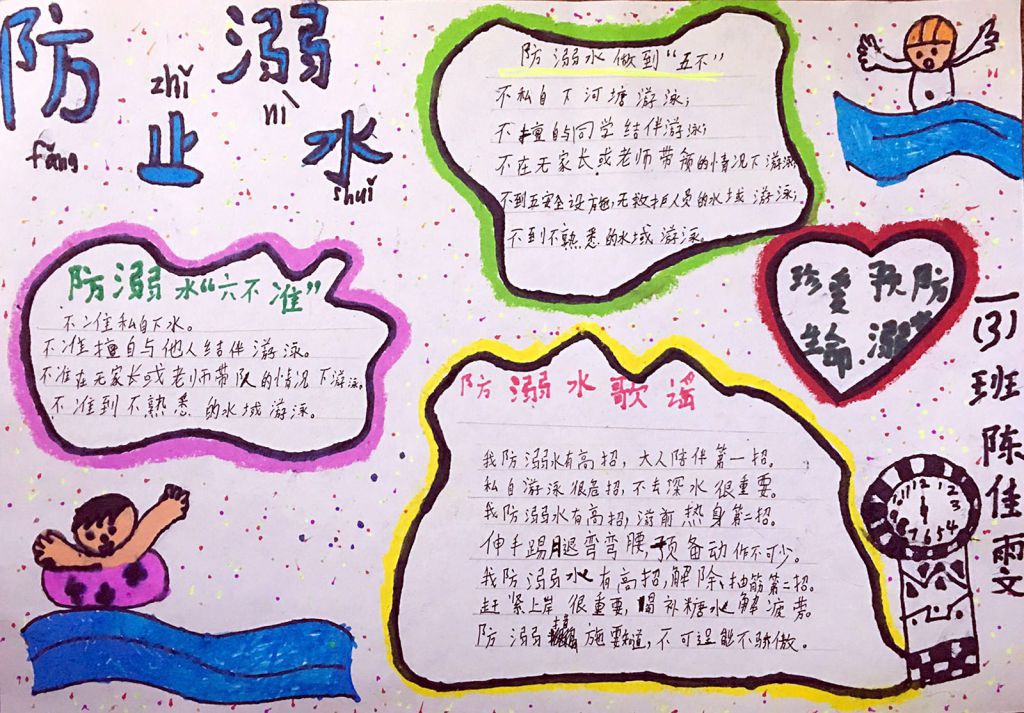 防溺
zhǐ
nì
fáng
止水
shuǐ
防溺水做到“五不”
不私自下河塘游泳；
不擅自与同学结伴游泳；
不在无家长或老师带领的情况下游泳
不到无安全设施，无救护人员的水域游泳；
不到不熟悉的水域游泳。
防溺水“六不准”
不准私自下水。
不准擅自与他人结伴游泳。
不准在无家长或老师带队的情况下游泳。
不准到不熟悉的水域游泳。
珍爱预防
生命.溺
一(3)班陈佳雨文
防溺水歌谣
我防溺水有高招，大人陪伴第一招。
私自游泳很危招，不去深水很重要。
我防溺水有高招，游前热身第二招。
伸手踢腿弯弯腰，预备动作不可少。
我防溺水有高招，解除抽筋第二招。
赶紧上岸很重要，喝补糖水解疲劳。
防溺施要知道，不可逞能不骄傲。
11 12 1 2 3 4 5 6 7